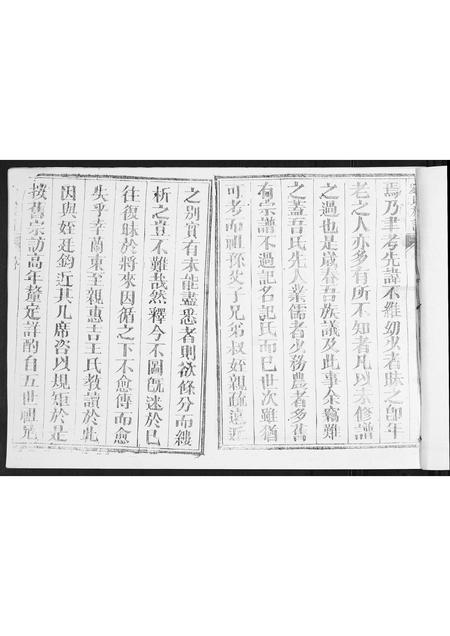 焉乃聿考先諱不維幼少者昧之卽年
老之人亦多有所不知者此以未修譜
之過也是歲春吾族議及此事余竊難
之蓋吾氏先人業儒者少務農者多舊
有宗譜不過記名記氏而已世次雖猶
可考而祖孫父子兄弟叔姪親疏遠近
之別實有未能盡悉者則欲條分而縷
析之豈不難哉然釋今不圖旣迷於已
往復昧於將來因循之下不愈傳而愈
失乎幸蘭東至親惠吉王氏教讀於此
因與姪廷鈞近其几席咨以規矩於是
按舊宗訪高年釐定詳酌自五世祖